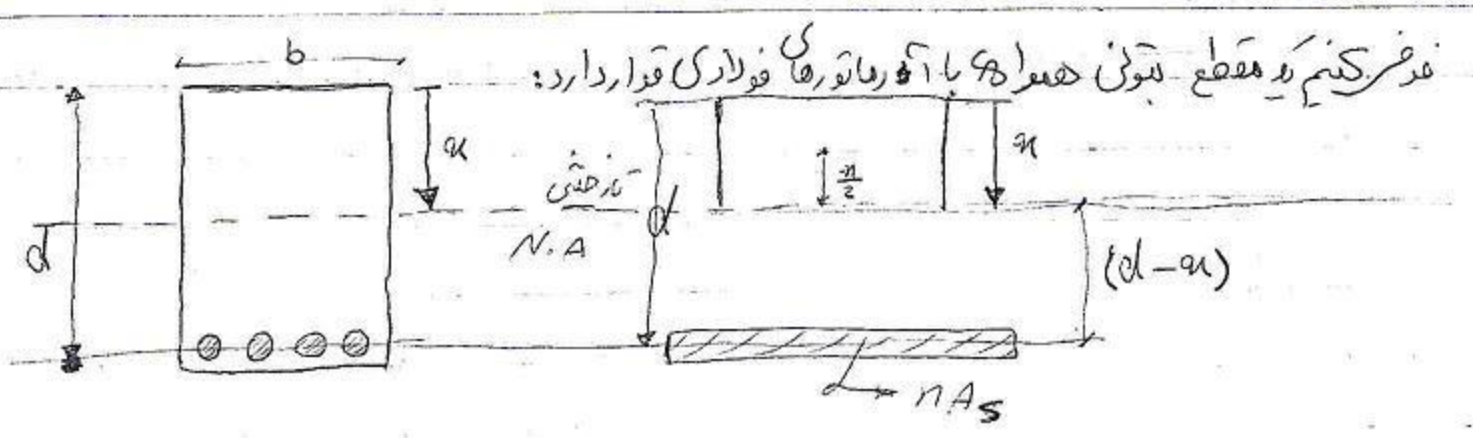 فرض کنیم که مقطع بتونی همواره با آرماتورهای فولادی قرار دارد:
b
d
x
تار خنثی
N.A
d
x/2
x
(d-x)
nAs